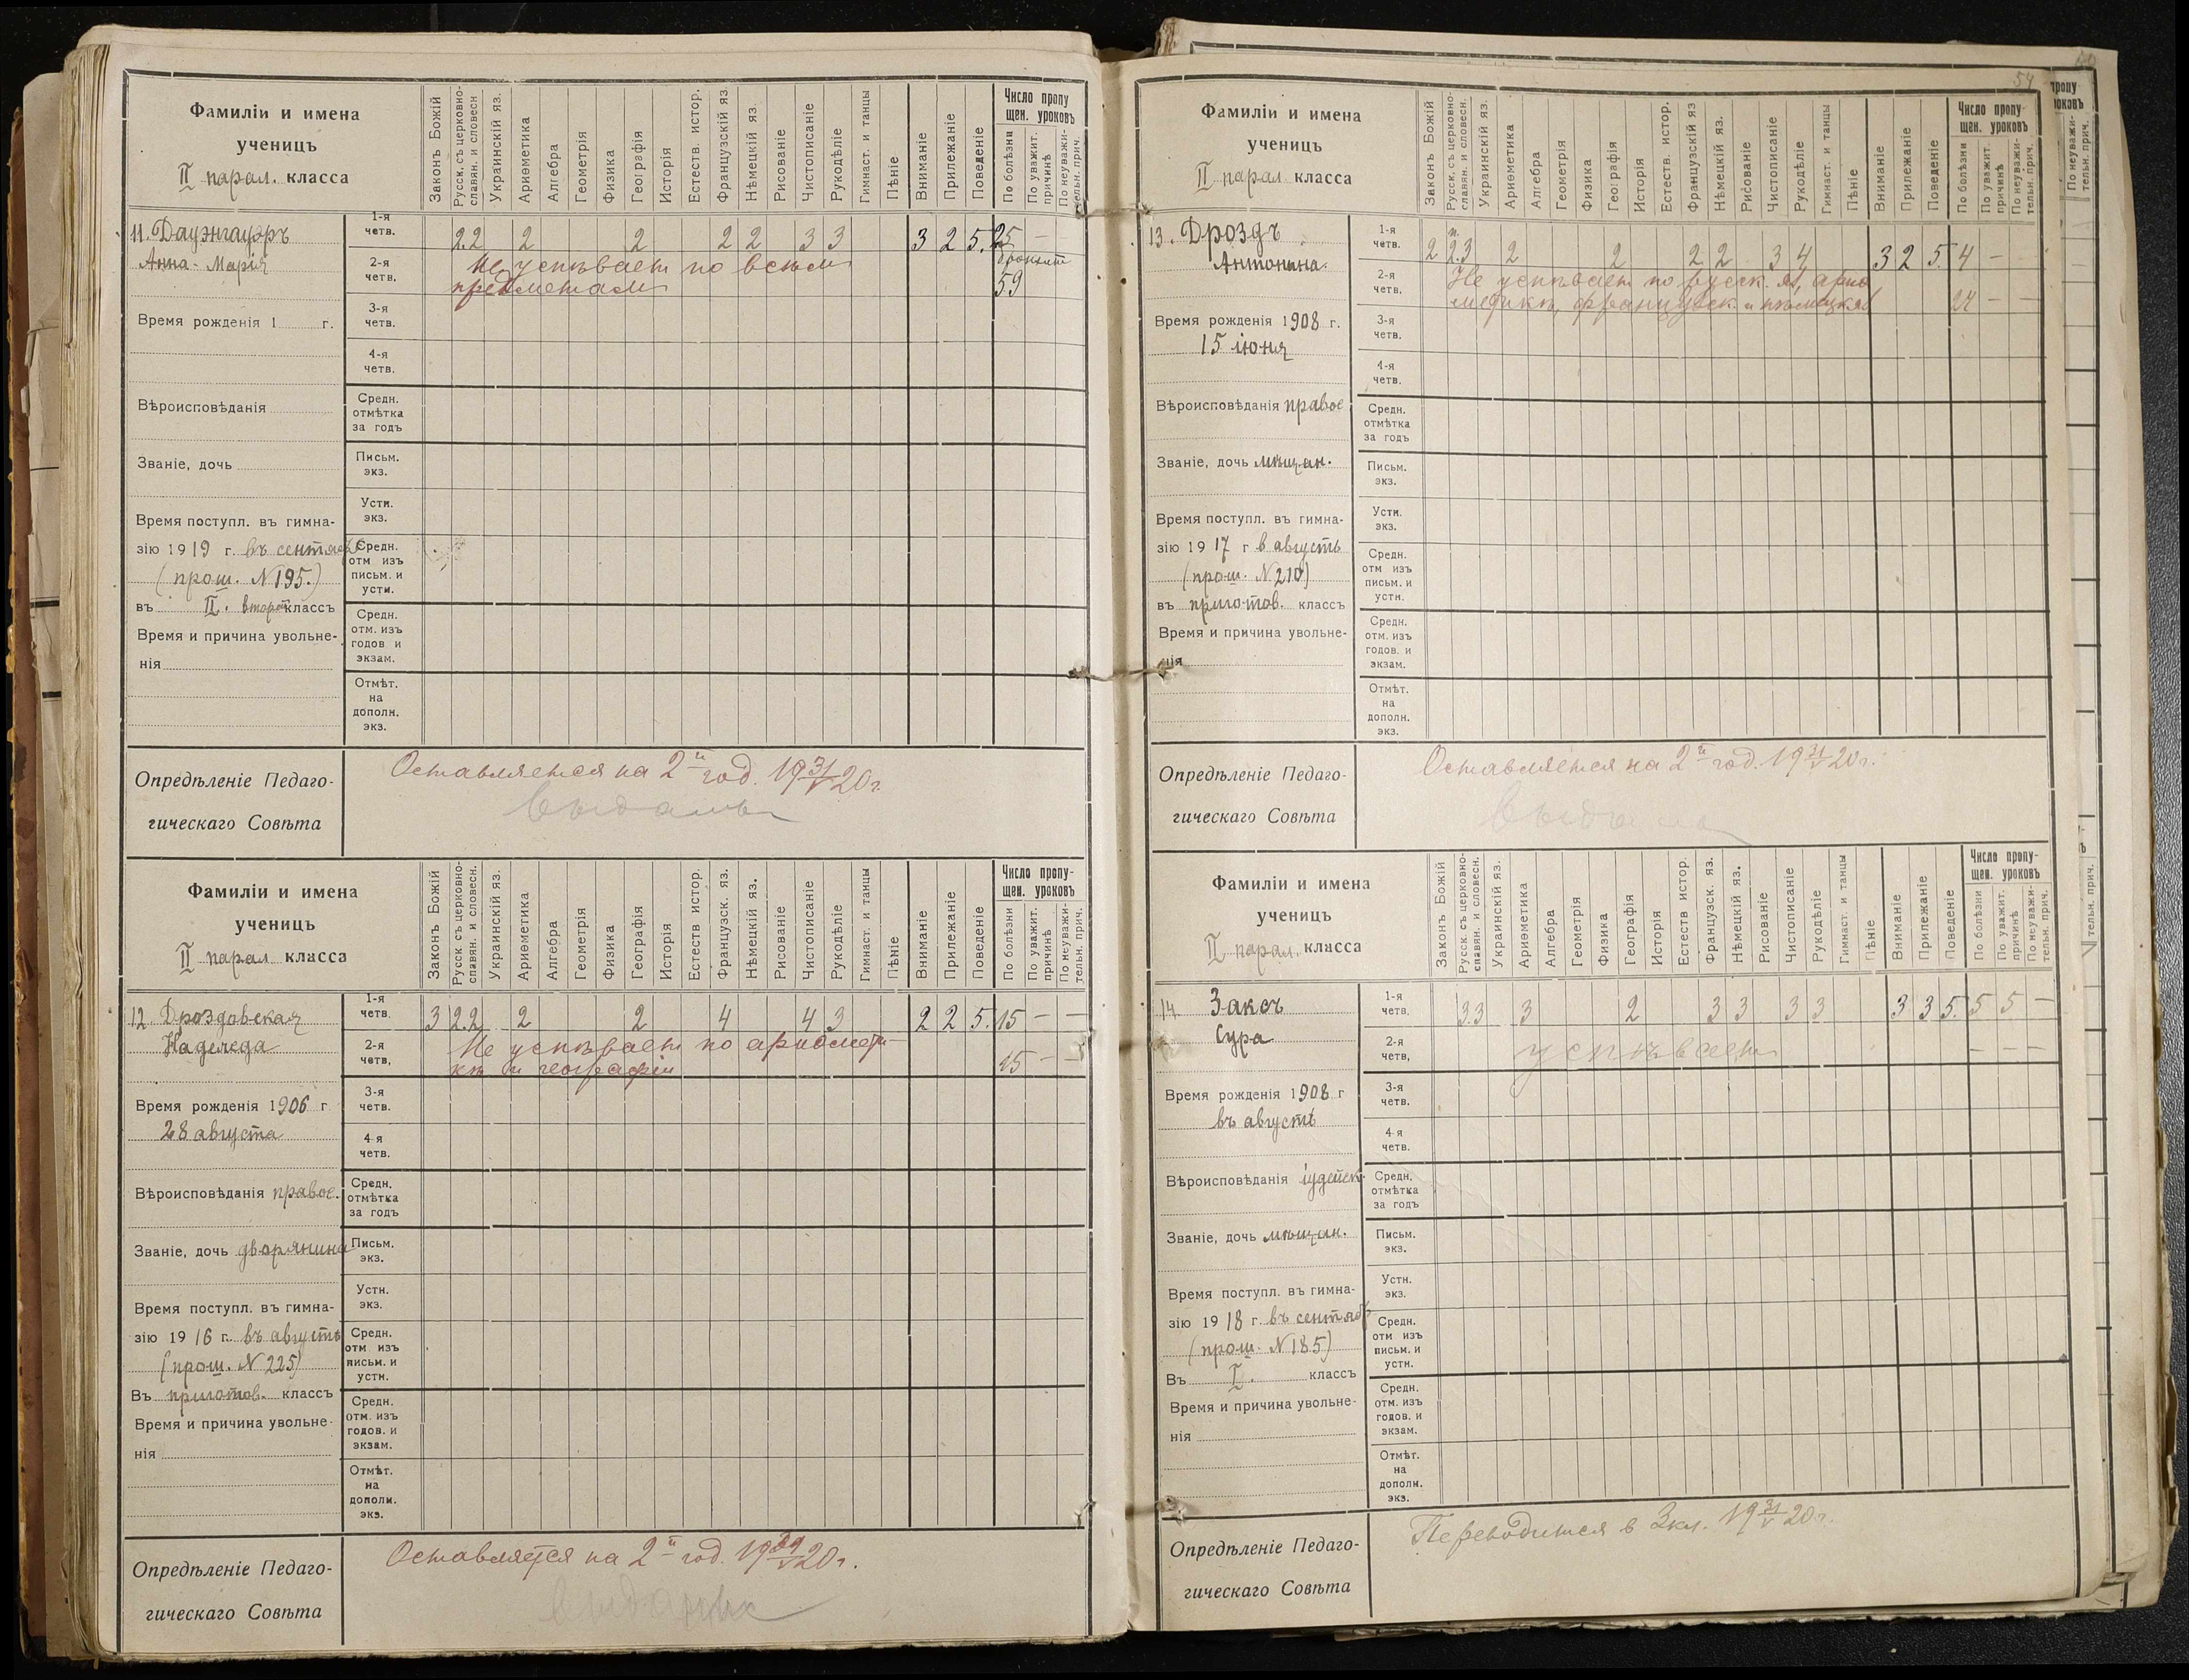 54
Фамиліи и имена
ученицъ
II парал. класса
Законъ Божій
Русск. съ церковно-
славян. и словесн
Украинскій яз.
Ариѳметика
Алгебра
Геометрія
Физика
Географія
Исторія
Естеств. истор.
Французскій яз
Нѣмецкій яз.
Рисованіе
Чистописаніе
Рукодѣліе
Гимнаст. и танцы
Пѣніе
Вниманіе
Прилежаніе
Поведеніе
Число пропу
щен. уроковъ
По болѣзни
По уважит.
причинѣ
По неуважи-
тельн. прич.
11. Дауэнгауэръ
Анна-Марія
1-я
четв.
2.2 2 2 2 2 3 3 3 2 5. 25 —
2-я
четв.
Не успѣваетъ по всѣмъ
предметамъ
59
Время рожденія 1 г.
3-я
четв.
4-я
четв.
Вѣроисповѣданія
Средн.
отмѣтка
за годъ
Званіе, дочь
Письм.
экз.
Устн.
экз.
Время поступл. въ гимна-
зію 1919 г. въ сентябѣ
(прош. N 195.)
въ II. второй классъ
Средн.
отм изъ
письм. и
устн.
Время и причина увольне-
нія
Средн.
отм. изъ
годов и
экзам.
Отмѣт.
на
дополн.
экз.
Опредѣленіе Педаго-
гическаго Совѣта
Оставляется на 2й год. 19 31/V 20 г.
Фамиліи и имена
ученицъ
II парал класса
Законъ Божій
Русск. съ церковно-
славян. и словесн.
Украинскій яз.
Ариѳметика
Алгебра
Геометрія
Физика
Географія
Исторія
Естеств истор.
Французск. яз.
Нѣмецкій яз.
Рисованіе
Чистописаніе
Рукодѣліе
Гимнаст. и танцы
Пѣніе
Вниманіе
Прилежаніе
Поведеніе
Число пропу-
щен. уроковъ
По болѣзни
По уважит.
причинѣ
По неуважи-
тельн. прич.
12. Дроздовская
Надежда
1-я
четв.
3 2.2 2 2 4 4 3 2 2 5. 15 — —
2-я
четв,
Не успѣваетъ по ариѳмети-
кѣ и географіи
15 — —
Время рожденія 1906 г
28 августа
3-я
четв.
4-я
четв.
Вѣроисповѣданія правос.
Средн.
отмѣтка
за годъ
Званіе, дочь дворянина
Письм.
экз.
Устн.
экз.
Время поступл. въ гимна-
зію 1916 г. въ августѣ
(прош. N 225)
Въ приготов. классъ
Средн.
отм изъ
письм. и
устн.
Время и причина увольне-
нія
Средн.
отм. изъ
годов. и
экзам.
Отмѣт.
на
дополн.
экз.
Опредѣленіе Педаго-
гическаго Совѣта
Оставляется на 2й год. 19 29/V 20 г.
Фамиліи и имена
ученицъ
II парал класса
Законъ Божій
Русск. съ церковно-
славян. и словесн.
Украинскій яз.
Ариѳметика
Алгебра
Геометрія
Физика
Географія
Исторія
Естеств. истор.
Французскій яз
Нѣмецкій яз.
Рисованіе
Чистописаніе
Рукодѣліе
Гимнаст. и танцы
Пѣніе
Вниманіе
Прилежаніе
Поведеніе
Число пропу-
щен. уроковъ
По болѣзни
По уважит.
причинѣ
По неуважи-
тельн. прич.
13. Дроздъ
Антонина.
1-я
четв.
2 2.3 2 2 2 2 3 4 3 2 5. 4 —
2-я
четв.
Не успѣваетъ по русск. яз, ариѳ
метикѣ, французск. и нѣмецкяз
24 — —
Время рожденія 1908 г.
15 іюня
3-я
четв.
4-я
четв.
Вѣроисповѣданія правос
Средн.
отмѣтка
за годъ
Званіе, дочь мѣщан.
Письм.
экз.
Устн.
экз.
Время поступл. въ гимна-
зію 1917 г в августѣ
(прош. N 210)
въ приготов. классъ
Средн.
отм изъ
письм. и
устн.
Время и причина увольне-
нія
Средн.
отм. изъ
годов. и
экзам.
Отмѣт.
на
дополн.
экз.
Опредѣленіе Педаго-
гическаго Совѣта
Оставляется на 2й год. 19 31/V 20 г.
Фамиліи и имена
ученицъ
II парал. класса
Законъ Божій
Русск. съ церковно-
славян. и словесн.
Украинскій яз.
Ариѳметика
Алгебра
Геометрія
Физика
Географія
Исторія
Естеств истор.
Французск. яз.
Нѣмецкій яз.
Рисованіе
Чистописаніе
Рукодѣліе
Гимнаст. и танцы
Пѣніе
Вниманіе
Прилежаніе
Поведеніе
Число пропу-
щен. уроковъ
По болѣзни
По уважит.
причинѣ
По неуважи-
тельн. прич.
14 Заксъ
Сура
1-я
четв.
3.3 3 2 3 3 3 3 3 3 5. 5 5 —
2-я
четв,
успѣваетъ
— — —
Время рожденія 1908 г
въ августѣ
3-я
четв.
4-я
четв.
Вѣроисповѣданія іудейск.
Средн.
отмѣтка
за годъ
Званіе, дочь мѣщан.
Письм.
экз.
Устн.
экз.
Время поступл. въ гимна-
зію 1918 г. въ сентябр
(прош. N 185)
Въ I. классъ
Средн.
отм изъ
письм. и
устн.
Время и причина увольне-
нія
Средн.
отм. изъ
годов. и
экзам.
Отмѣт.
на
дополн.
экз.
Опредѣленіе Педаго-
гическаго Совѣта
Переводится в 3 кл. 19 31/V 20 г.